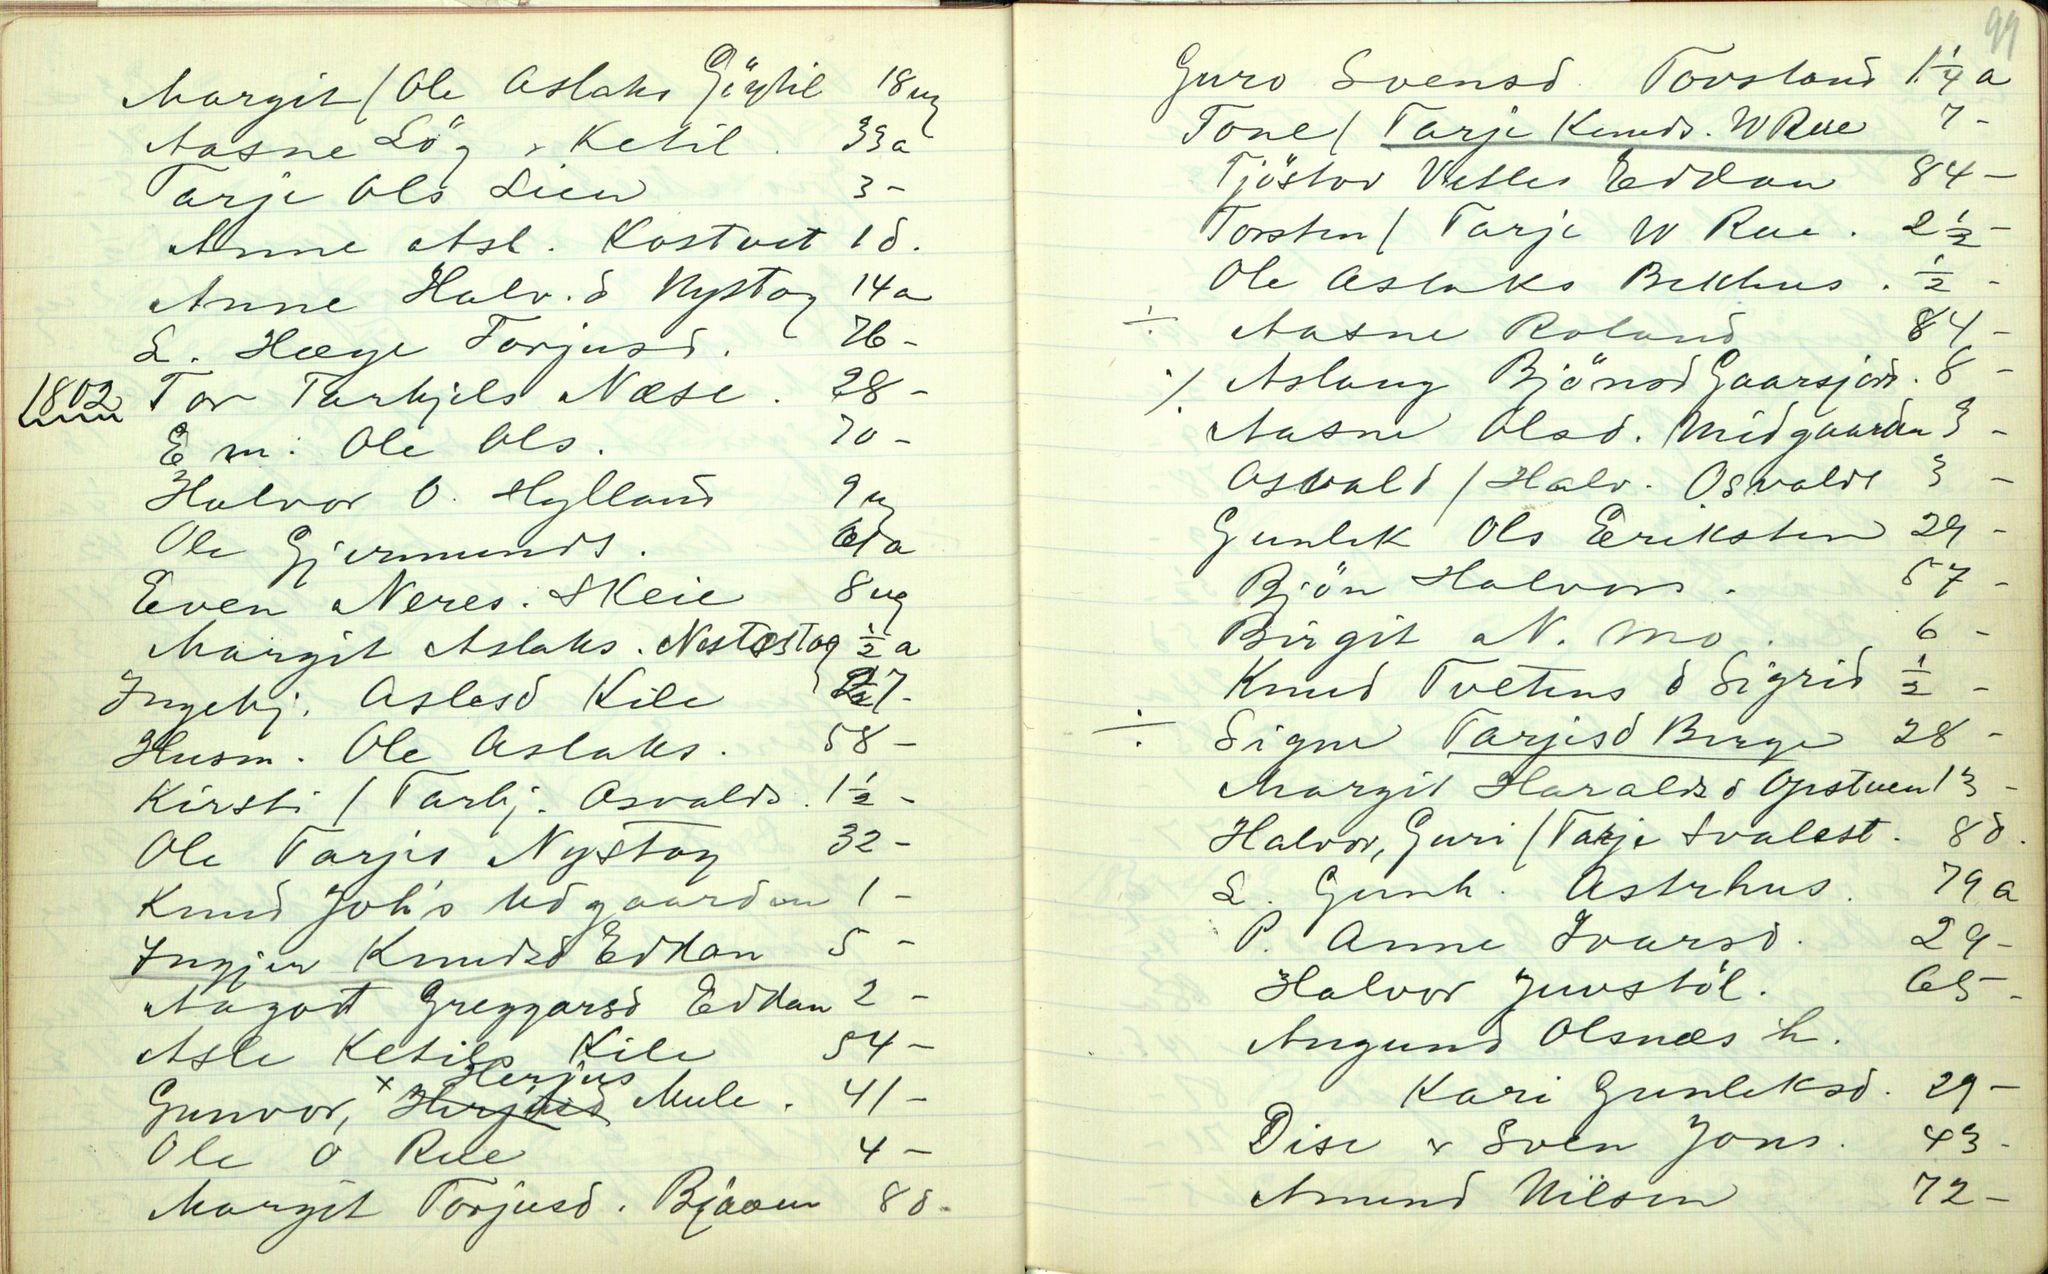 Margit / Ole Aslaks Göytil 18 ug
Aasne Lög x Ketil. 33 a
Tarje Ols Lien 3 -
Anne Asl. Kostveit 1 d.
Anne Halv. d Nystog 14 a
L. Hæge Torjusd. 76 -
1802 Tor Tarkjels Næse. 28 -
E m: Ole Ols. 70 -
Halvor O. Hylland 9 ug
Ole Gjermunds. 61 a
Even Neres. Skeie 8 ug
Margit Aslaks. Nestestog ½ a
Ingebj. Aslesd Kile 27 -
Husm. Ole Aslaks. 58 -
Kirsti / Tarkj. Osvalds. 1½ -
Ole Tarjes Nystog 32 -
Knud Joh's Udgaarden 1 -
Ingjer Knudsd Eddan 5 -
Aagot Greggarsd Eddan 2 -
Asle Ketils Kile 54 -
Gunvor, x Herjus Mule. 41 -
Ole O Rue 4 -
Margit Torjusd. Bjaaen 8 d.
99
Guro Svensd. Tovsland 1¼ a
Tone / Tarje Knuds. W Rue 7 -
Tjöstov Vetles Eddan 84 -
Torsten / Tarje W Rue. 2½ -
Ole Aslaks Bekhus. ½ -
÷ Aasne Roland 84 -
٪ Aslaug Björnsd Gaarsjord. 8 -
Aasne Olsd. Midgaarden 3 -
Osvald / Halv. Osvalds 3 -
Gunlek Ols Eriksten 29 -
Bjön Halvors. 57 -
Birgit N. Mo. 6 -
Knud Tvetens d Sigrid ½ -
÷ Signe Tarjesd Berge 28 -
Margit Haraldsd Opstuen 13 -
Halvor, Guri / Tarje Svalest. 8 d.
L. Gunh. Astrhus. 79 a
P. Anne Ivarsd. 29 -
Halvor Juvstöl. 65 -
Augund Olsnæs h.
Kari Gunleksd. 29 -
Dise x Sven Jons. 43 -
Amund Nilsen 72 -